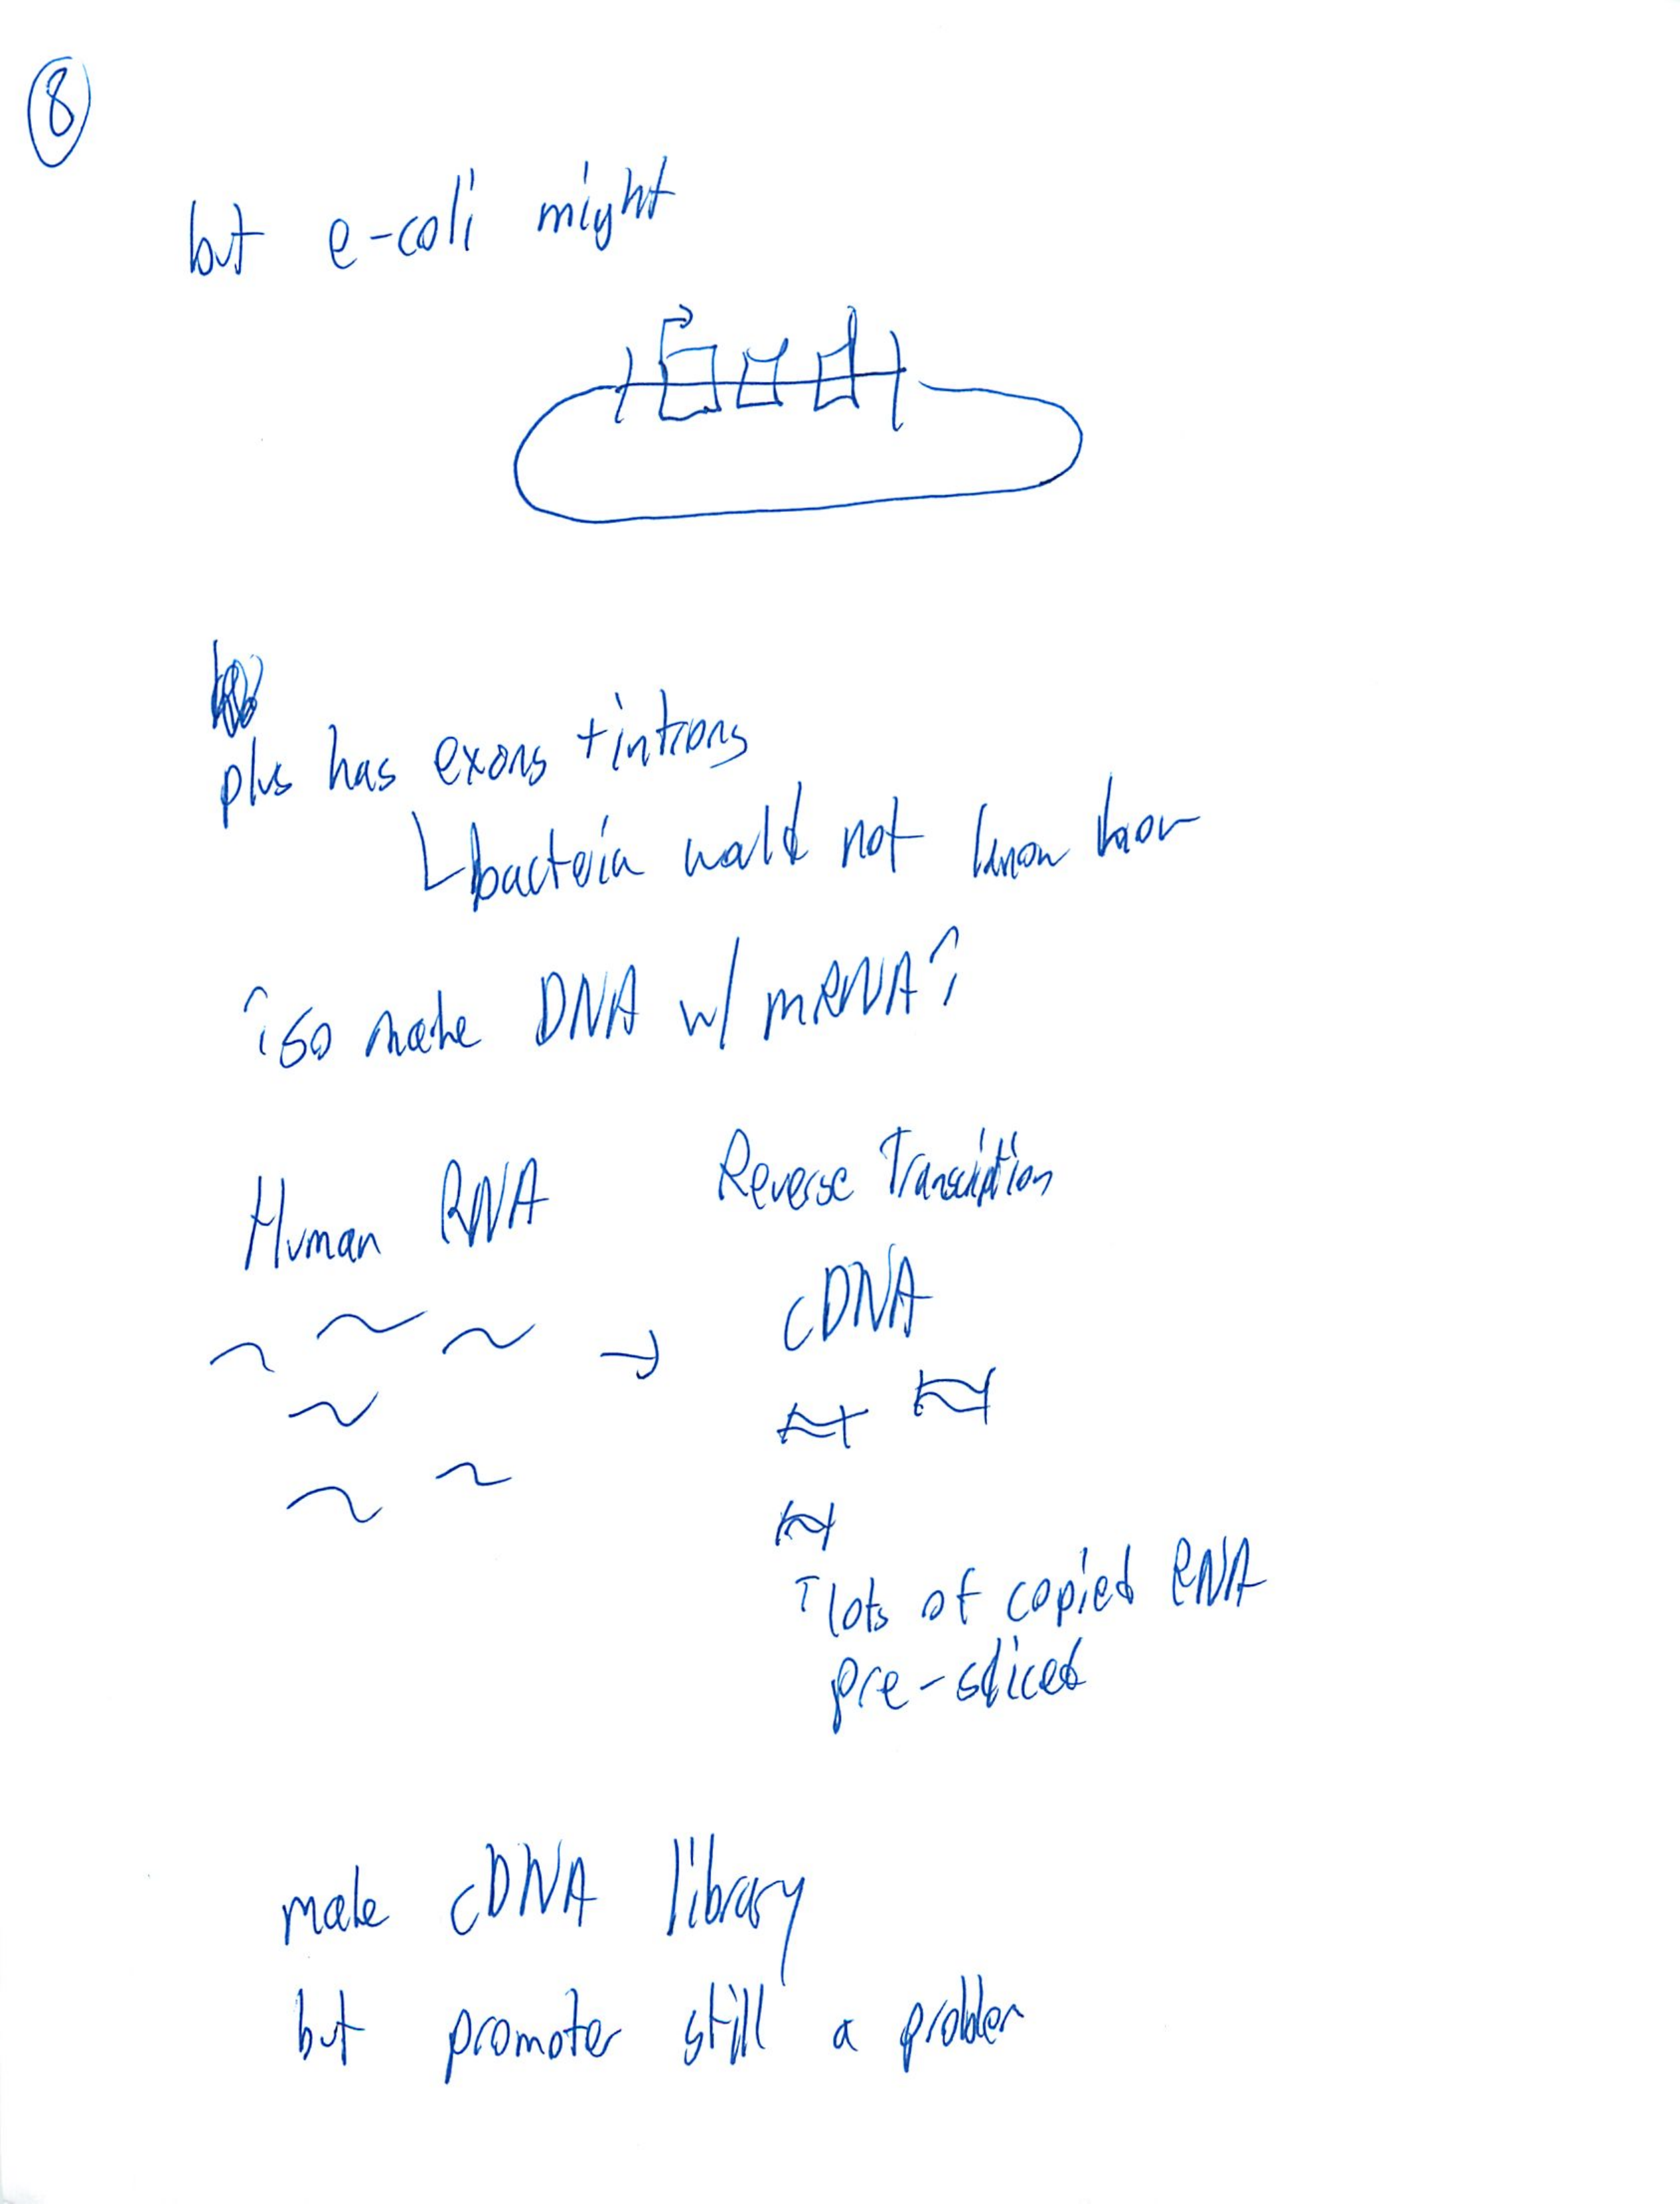 8
but e-coli might
plus has exons + introns
bacteria would not know how
so make DNA w/ mRNA?
Human RNA
Reverse Transcription
cDNA
lots of copied RNA
pre-sliced
make cDNA library
but promoter still a problem